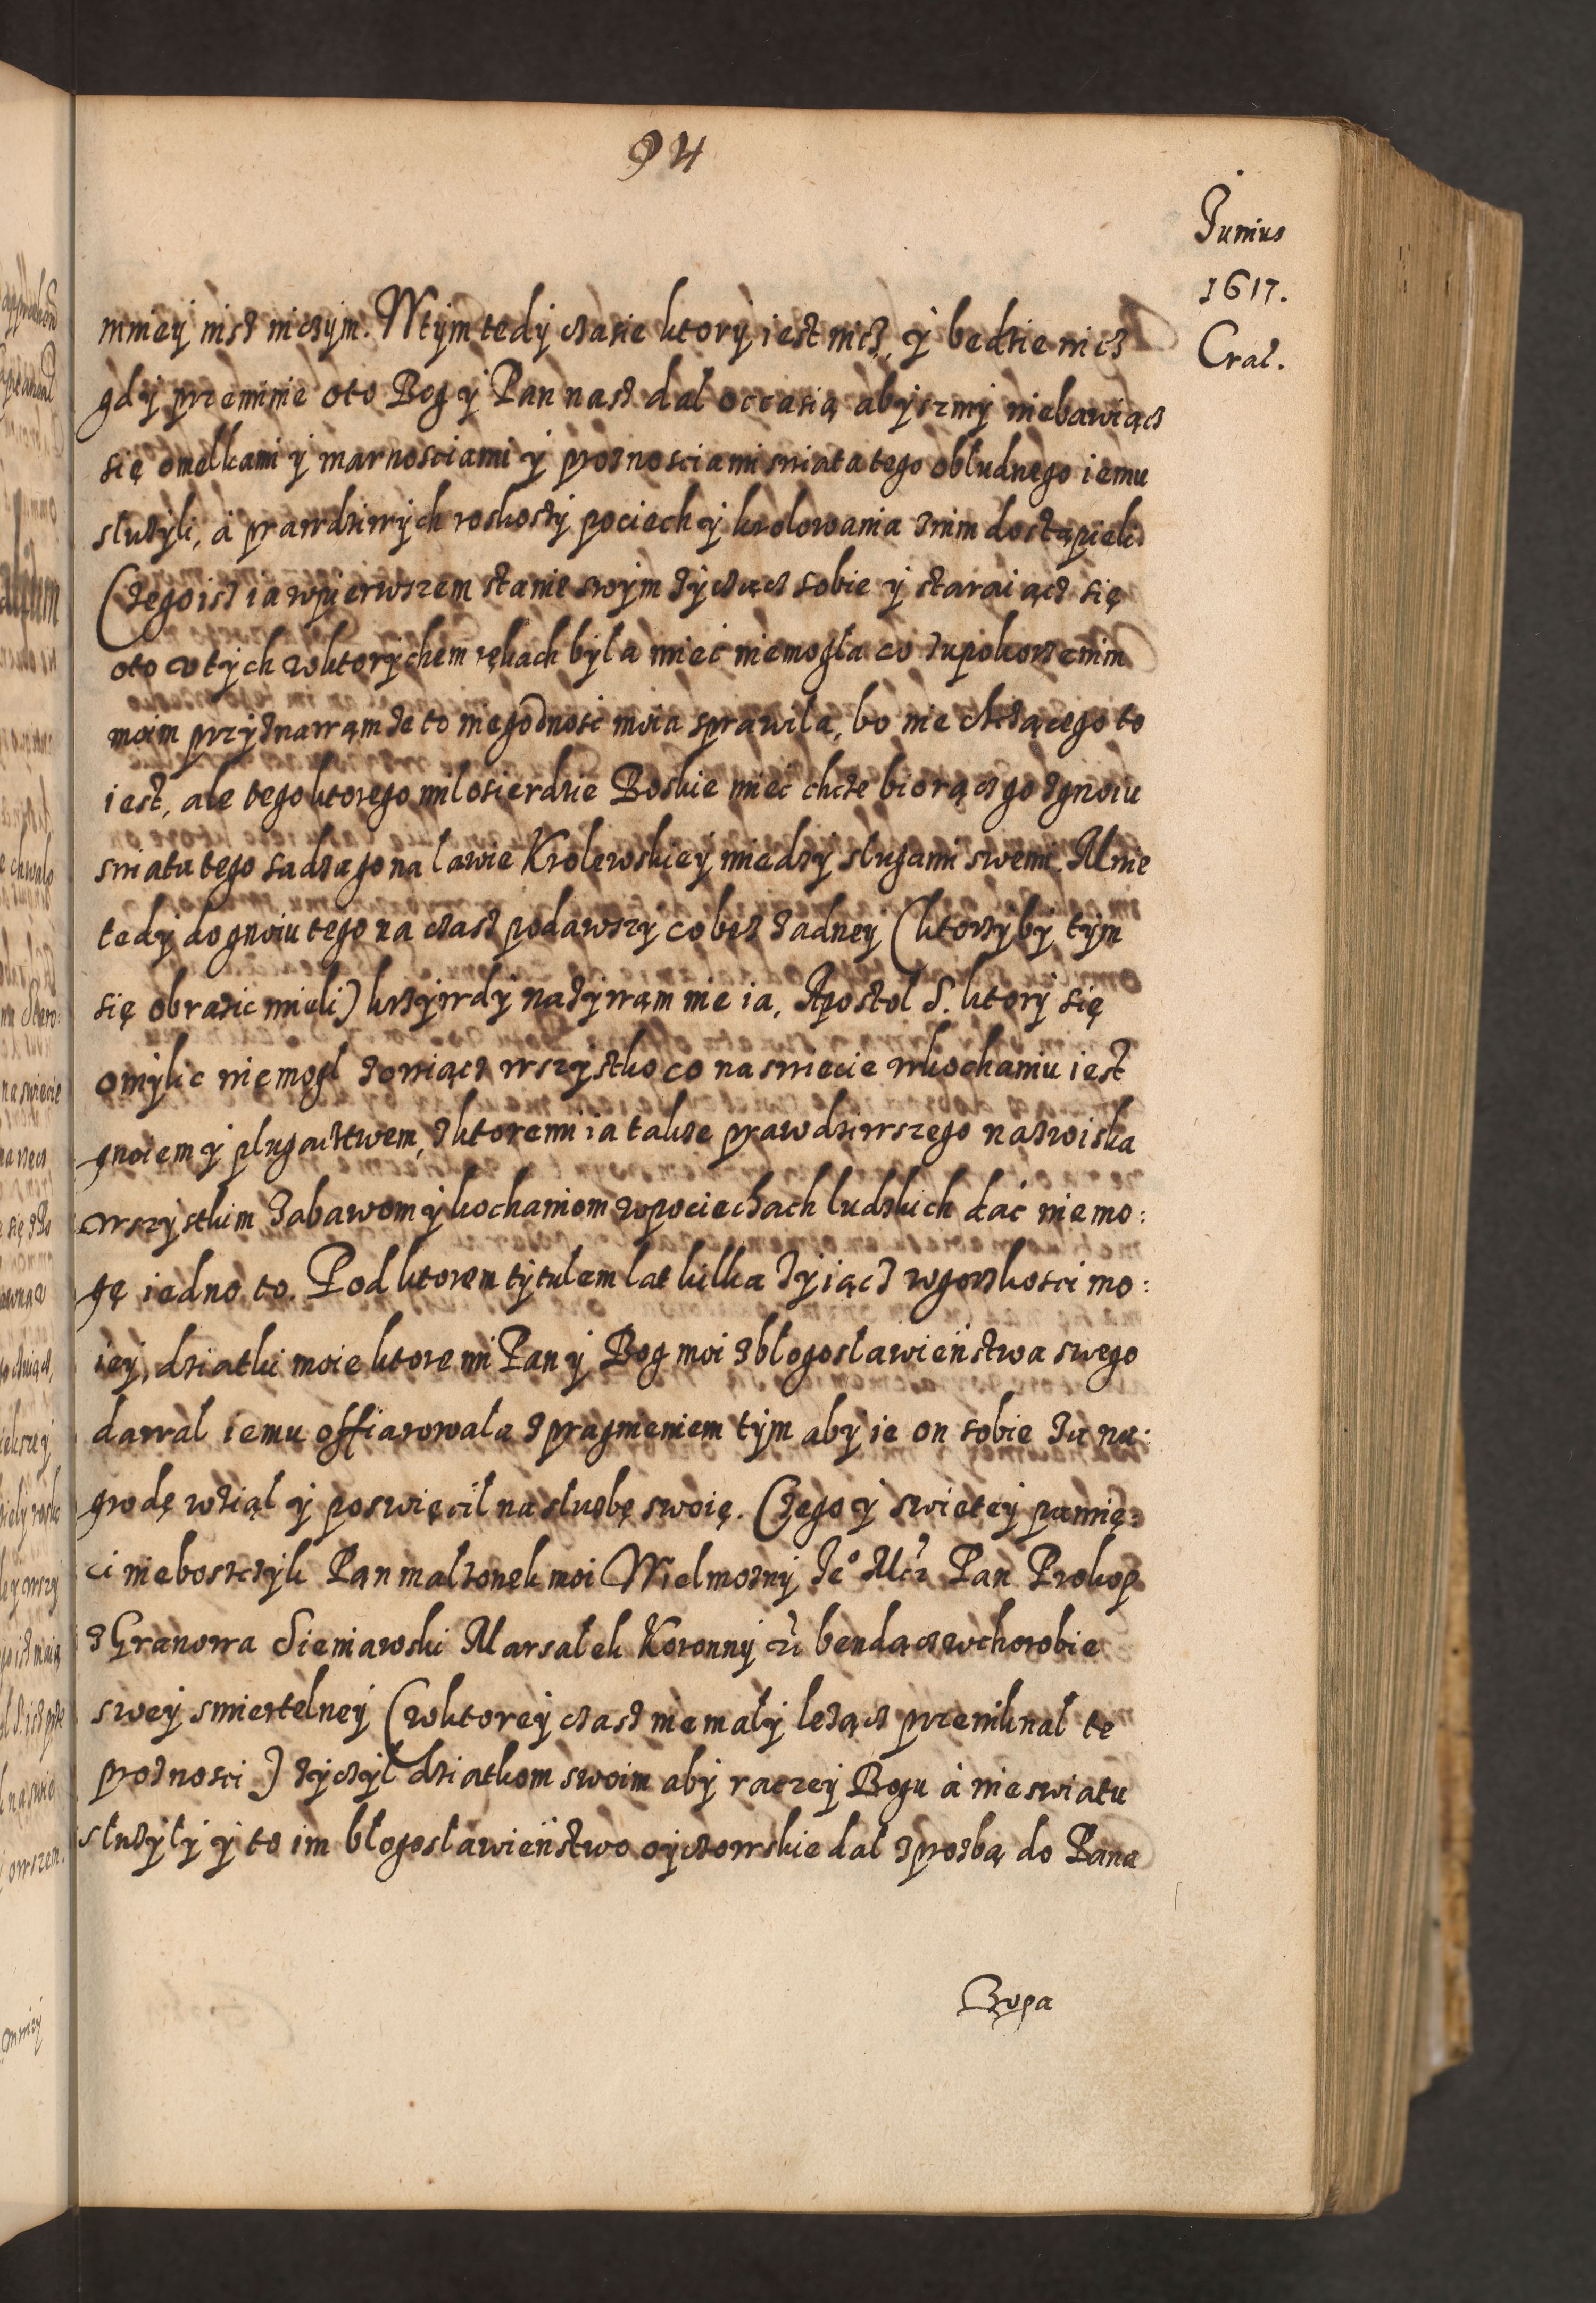 94
Junius
1617.
Crac.
mniey nisz niczym. W tym tedy czasie ktory iest nicz, y bedzie nicz
gdy przeminie oto Bog y Pan nasz dal occasią abyszmy niebawiącz
się omelkami y marnosciami y proznosciami swiata tego obludnego iemu
sluzyli, á prawdziwych roskoszy pociech y krolowania z nim dostąpieli
Czego isz ia w pierwszem stanie swym zyczącz sobie y staraiącz się
oto w tych w ktorychem rękach byla miec niemogla co z upokorzenim
moim przyznawąm ze to niegodnosc moia sprawila, bo nie chczącego to
iest, ale tego ktorego milosierdzie Boskie miec chcze biorącz go z gnoiu
swiata tego sadza go na lawie Krolewskiey miedzy slugami swemi. Mnie
tedy do gnoiu tego na czasz podawszy co bez zadney (ktorzyby tym
się obrazic mieli) krzywdy nazywąm nie ia, Apostol S. ktory się
omylic nie mogl zowiącz wszystko co na swiecie w kochaniu iest
gnoiem y plugactwem, z ktoremi ia takze prawdziwszego nazwiska
wszystkim zabawom y kochaniom w pociechach ludzkich dać nie mo:
gę iedno to. Pod ktorem tytulem lat kilka zyiącz w gorzkosci mo:
iey, dziatki moie ktore mi Pan y Bog moi z blogoslawieństwa swego
dawal iemu offiarowala z pragnieniem tym aby ie on sobie za na:
grodę wziąl y poswięcil na sluzbę swoię. Czego y swietey pamię:
ci nieboszczyk Pan malzonek moi Wielmozny Je° Mcz Pan Prokop
z Granowa Sieniawski Marsalek Koronny etc bendącz w chorobie
swey smiertelney (w ktorey czasz niemaly lezącz przeniknal te
proznosci) zyczyl dziatkom swoim aby raczey Bogu á nie swiatu
sluzyly y to im blogoslawieństwo oyczowskie dal z prozbą do Pana
Boga